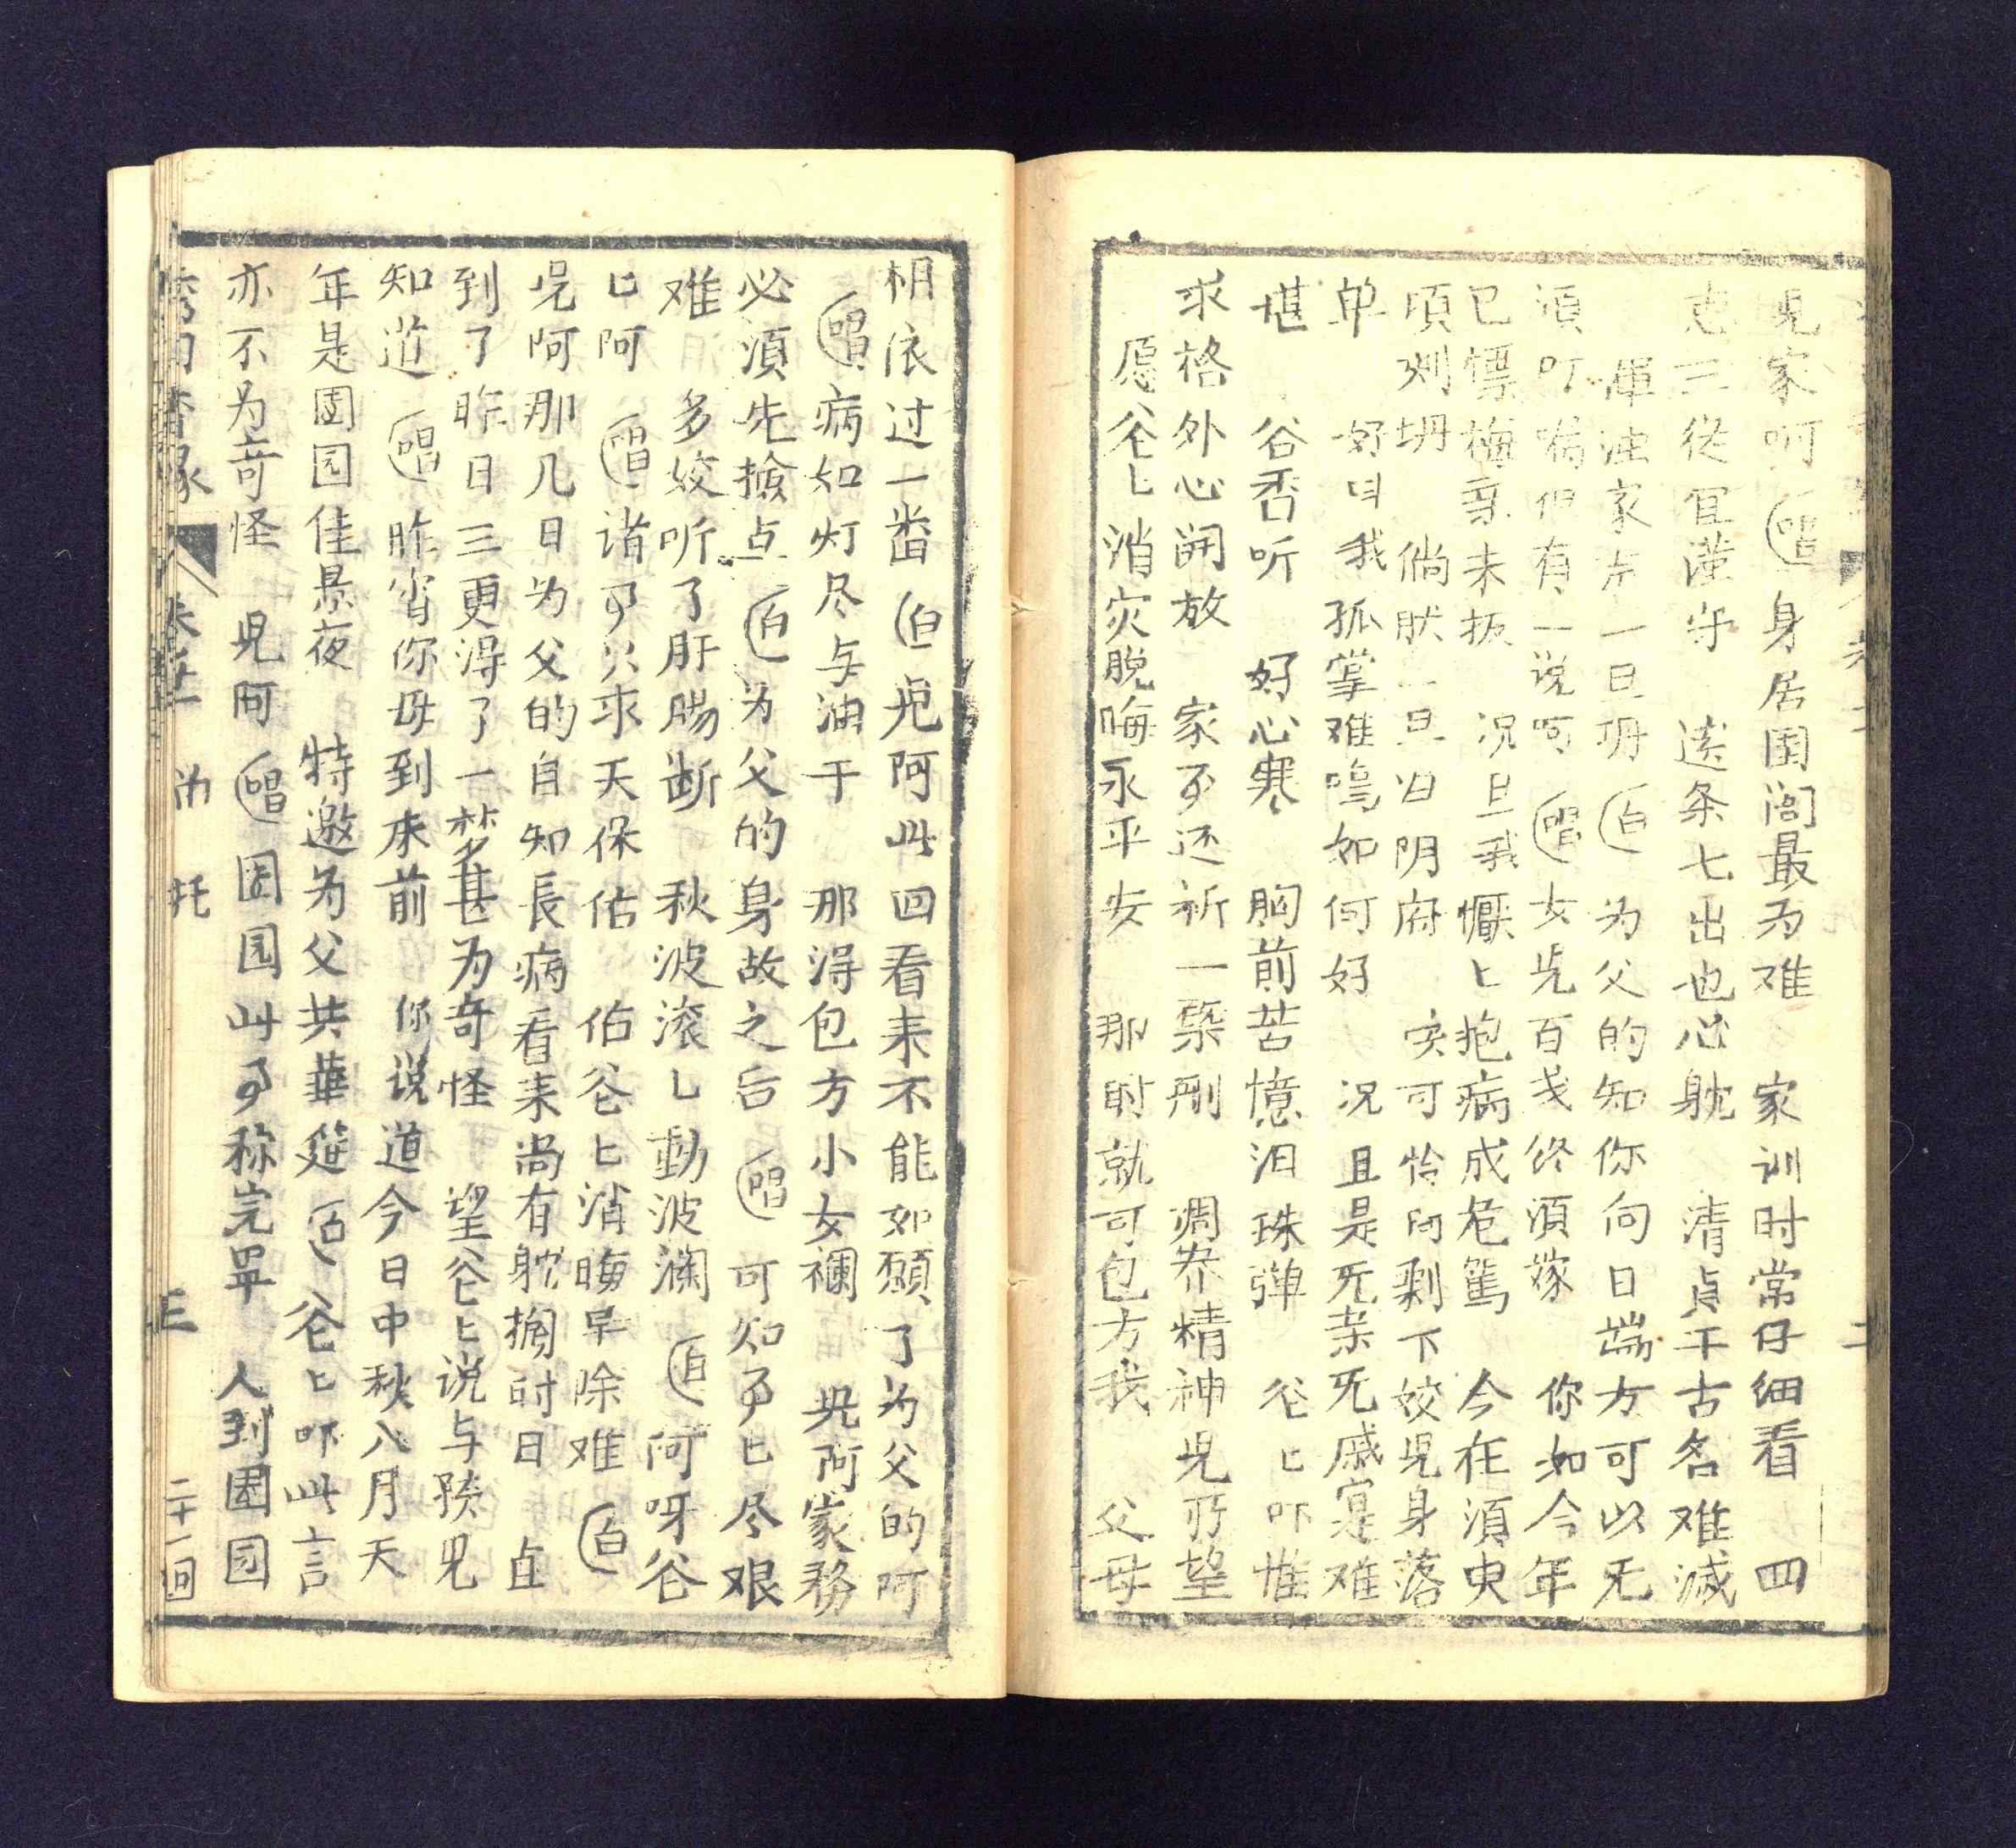 児家呵 唱 身居閨閣最为难 家训时常仔细看 四
志三從宜谨守 送条七出也心躭 清貞千古名难滅
一旦坍 白 为父的知你向日端方可以无
須叮嘱但有一说呵 唱 女児百岁终須嫁 你如今年
已慓梅亲未扳 况且我懨匕抱病成危篤 今在須臾
頃刻坍 倘然一旦归阴府 实可怜向剩下姣児身落
单 好呌我孤掌难鳴如何好 况且是旡亲旡戚寔难
堪 爷爷听 好心寒 胸前苦憶泪珠弹 爷匕吓惟
求格外心開放 家事还祈一槩刪 调养精神児所望
愿爷匕消灾脱晦永平安 那时就可包方我 父母
相依过一番 白 児阿此回看来不能如願了为父的阿
唱 病如灯尽与油干 那得包方小女襕 児阿家務
必須先撿点 白 为父的身故之后 唱 可知事匕尽艰
难 多姣听了肝腸断 秋波滚匕動波瀾 白 阿呀爷
匕阿 唱 诸事只求天保佑 佑爷匕消晦早除难 白
児阿那几日为父的自知長病看来尚有躭搁时日 直
到了昨日三更得了一梦甚为奇怪 望爷匕说与孩児
知道 唱 昨宵你母到床前 你说道今日中秋八月天
年是團园佳景夜 特邀为父共華筵 白 爷匕吓此言
亦不为奇怪 児阿 唱 團园此事称完畢 人到團园
卷廿一 病托 三 二十一回